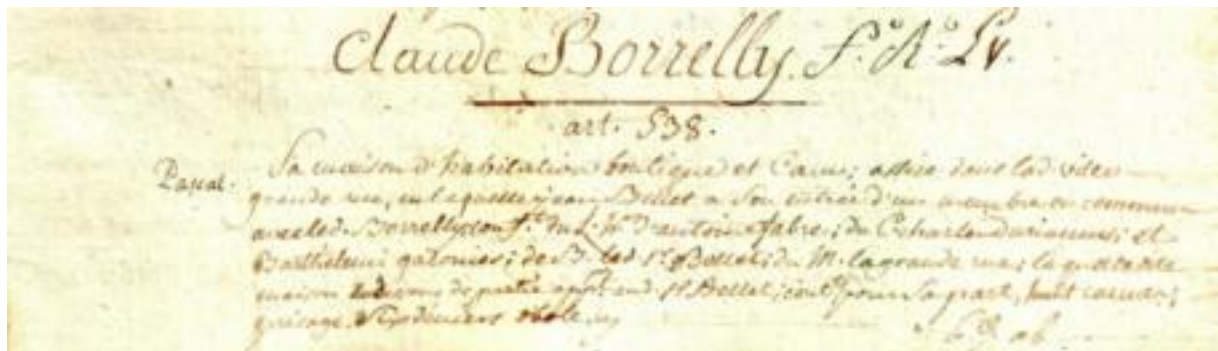 Claude Borrelly. f.° R.° Lv.
art. 538.
Pascal. Sa maison d'habitation boutique et Cave; assise dans lad ville
grande rue, en laquelle jean Bellet a Son entrée d'un membre en commun
avec led. Borrelly conf.te du L. h.rs d'antoine fabre; du C. charles et
Barthelemi galonier; de B. led. Sr Bellet; du M. la grande rue; laquelle
maison de partie app.t aud. Sr Bellet; cont. pour Sa part, huit cannes;
prisage Six deniers obole
6 d. ob